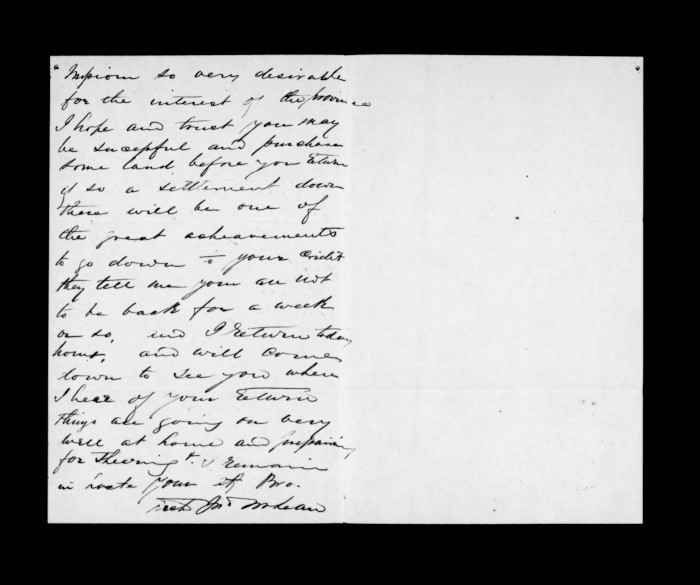 Mission so very desirable
for the interest of the province
I hope and trust you may
be sucepful and purchase
some land before you return
if so a settlement down
there will be one of
the great acheavements
to go down to your Credit
they tell me your are not
to be back for a week
or so, and I return today
home, and will come
down to see you when
I hear of your return
things are going on very
well at home and prepairing
for Shearing &. I remain
in haste your aff Bro.
Jno McLean